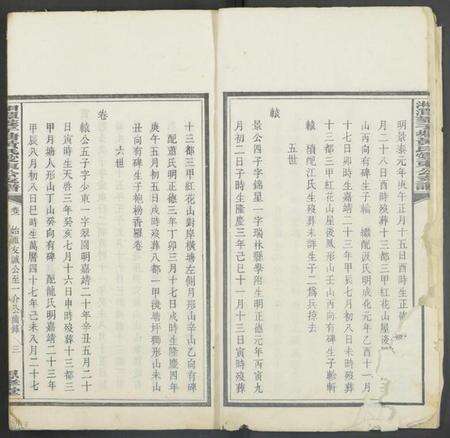 明景泰元年庚午正月十五日酉時生正德
月二十八日酉時歿葬十三都三甲紅花山星後
山丙向有碑生子輪 繼配淑氏明成化元年乙酉十一月
十七日卯時生嘉靖二十三年甲辰七月初八日未時歿葬
十三都三甲紅花山星後鳳形山壬山丙向有碑生子榦斬
轅 積配江氏生歿葬未詳生子二爲兵掠去
五世
轅
景公四子字錦星一字瑞林縣學附生明正德元年丙寅九
月初二日子時生隆慶三年己巳十一月十三日寅時歿葬
十三都三甲紅花山對岸橫塘左側月形山辛山乙向有碑
配蕭氏明正德三年丁卯三月十七日戌時生隆慶四年
庚午五月初五日戌時歿葬八都一甲後塘坪獅形山未山
丑向有碑生子
六世
卷
轅公五子字少東一字翠園明嘉靖二十年辛丑五月二十
日寅時生天啓三年癸亥七月十六日申時歿葬十三都三
甲月塘人形山丁山癸向有碑 配龍氏明嘉靖二十三年
甲辰八月初八日巳時生萬曆四十七年己未八月二十七
卷 始遷友誠公至一介公齒錄 三